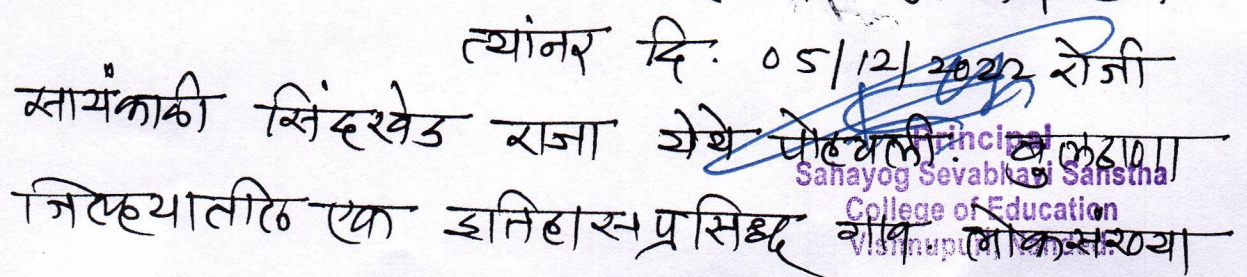 त्यांनर दि. ०5/12/2022 रोजी
सायंकाळी सिंदखेड राजा येथे पोहचली. बुलढाणा
जिल्ह्यातील एक इतिहासप्रसिध्द गाव. लोकसंख्या
Principal
Sahayog Sevabhavi Sanstha
College of Education
Vishnupuri, Nanded.